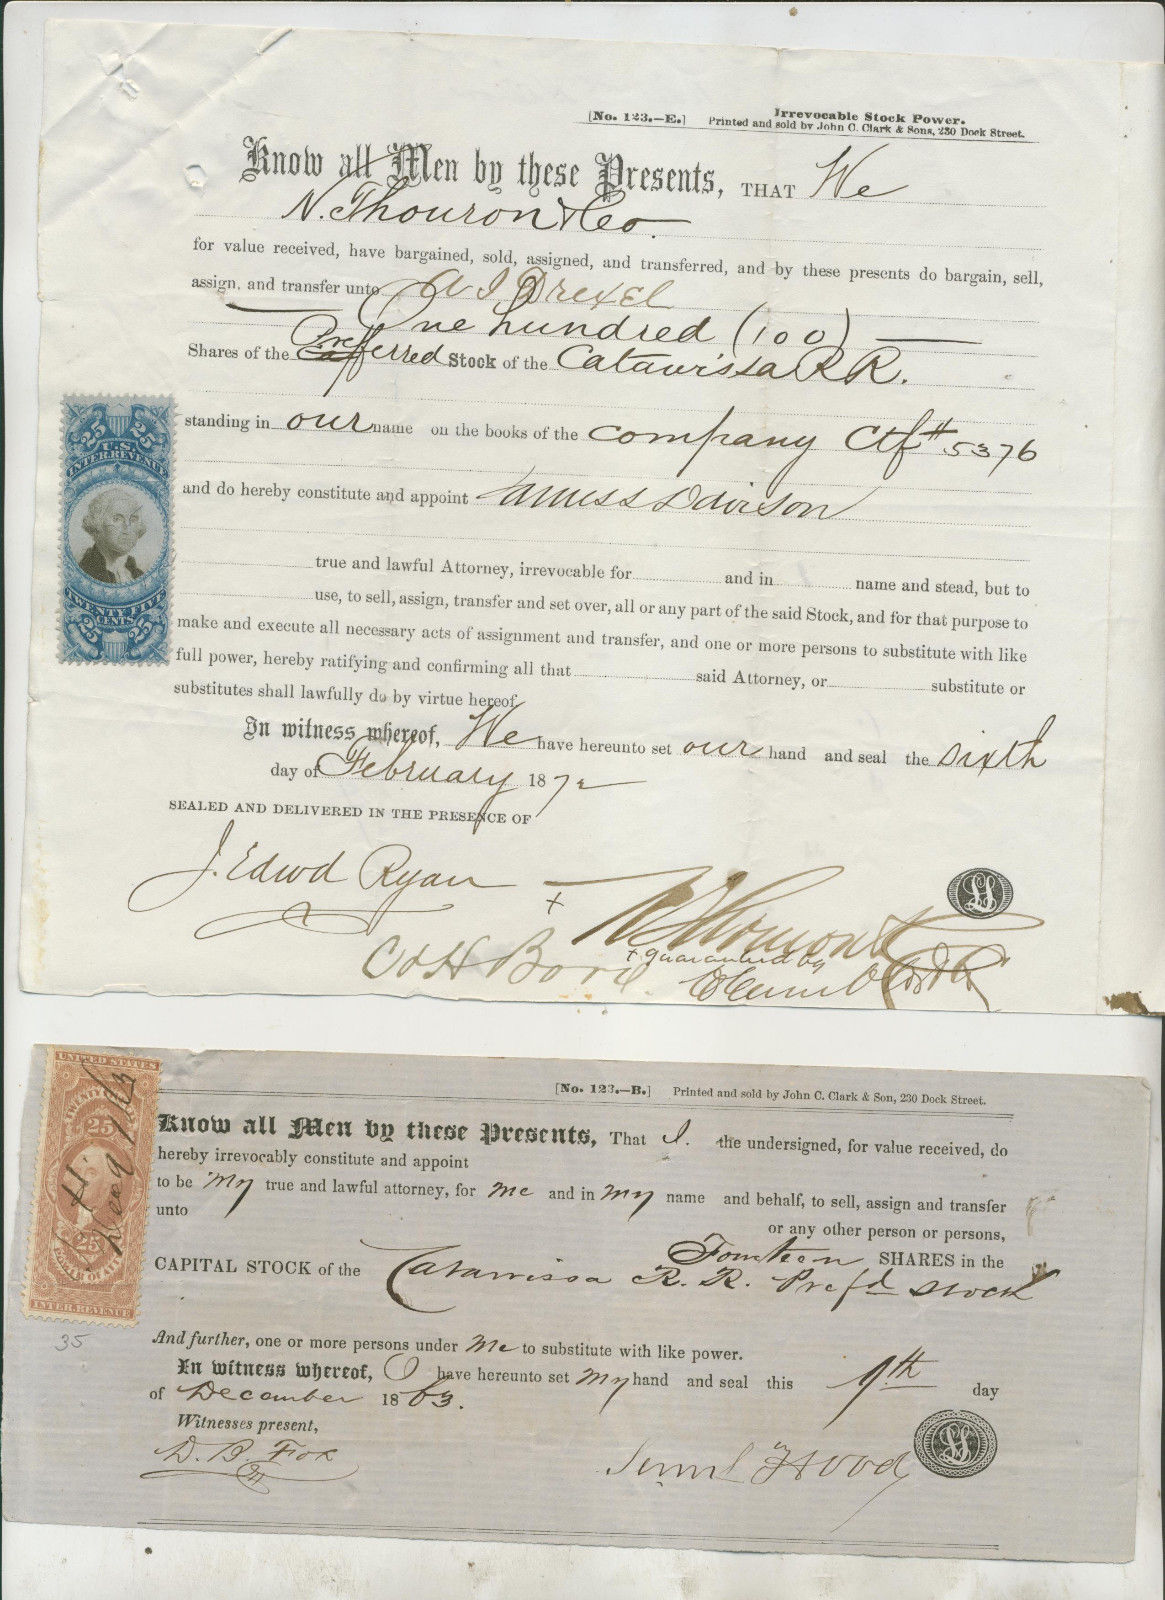 [No. 123.—E.]
Irrevocable Stock Power.
Printed and sold by John C. Clark & Sons, 230 Dock Street.
Know all Men by these Presents, THAT We
N. Thouron & Co.
for value received, have bargained, sold, assigned, and transferred, and by these presents do bargain, sell,
assign, and transfer unto A J Drexel
One hundred (100)
Shares of the Preferred Stock of the Catawissa R R.
standing in our name on the books of the company Ctf # 5376
and do hereby constitute and appoint James Davison
true and lawful Attorney, irrevocable for and in name and stead, but to
use, to sell, assign, transfer and set over, all or any part of the said Stock, and for that purpose to
make and execute all necessary acts of assignment and transfer, and one or more persons to substitute with like
full power, hereby ratifying and confirming all that said Attorney, or substitute or
substitutes shall lawfully do by virtue hereof.
In witness whereof, We have hereunto set our hand and seal the sixth
day of February 1872
SEALED AND DELIVERED IN THE PRESENCE OF
J. Edwd Ryan
+
C & H Borie
+ guaranteed by
LS
25 25
U.S.
INTER. REVENUE
TWENTY FIVE
CENTS
25 25
UNITED STATES
TWENTY
25
25
POWER OF ATT'Y
INTER. REVENUE
35
[No. 123.—B.] Printed and sold by John C. Clark & Son, 230 Dock Street.
Know all Men by these Presents, That I. the undersigned, for value received, do
hereby irrevocably constitute and appoint
to be My true and lawful attorney, for me and in my name and behalf, to sell, assign and transfer
unto
or any other person or persons,
Fourteen SHARES in the
CAPITAL STOCK of the Catawissa R. R. Prefd Stock
And further, one or more persons under Me to substitute with like power.
In witness whereof, I have hereunto set my hand and seal this 9th day
of December 1863.
Witnesses present,
D. B. Fox
Saml Hood
LS